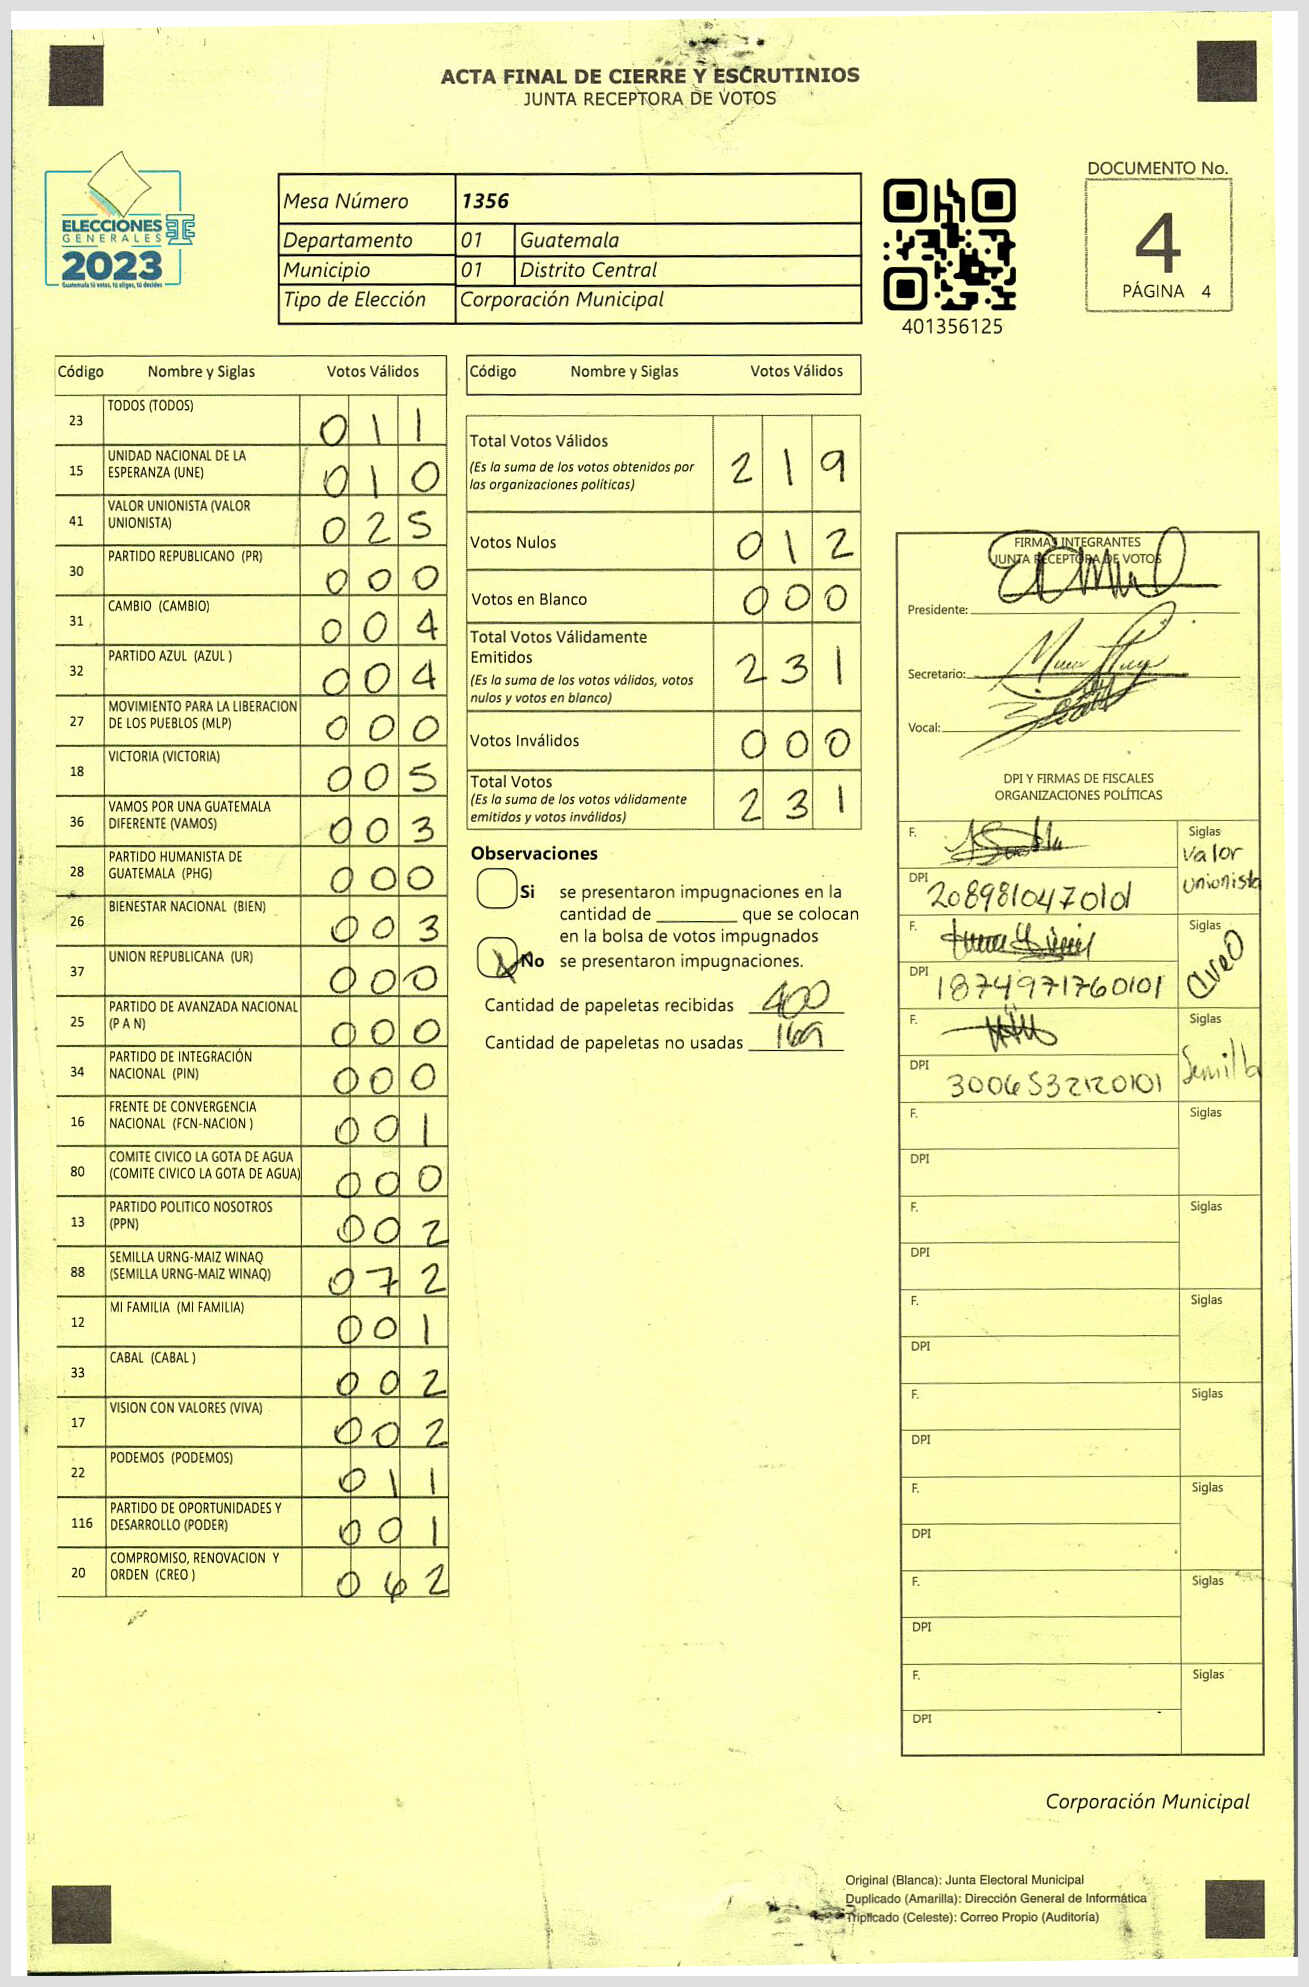 ACTA FINAL DE CIERRE Y ESCRUTINIOS
JUNTA RECEPTORA DE VOTOS
ELECCIONES
GENERALES
2023
Guatemala tú votas, tú eliges, tú decides
Mesa Número 1356
Departamento 01 Guatemala
Municipio 01 Distrito Central
Tipo de Elección Corporación Municipal
401356125
DOCUMENTO No.
4
PÁGINA 4
Código Nombre y Siglas Votos Válidos
23 TODOS (TODOS) 0 1 1
15 UNIDAD NACIONAL DE LA
ESPERANZA (UNE) 0 1 0
41 VALOR UNIONISTA (VALOR
UNIONISTA) 0 2 5
30 PARTIDO REPUBLICANO (PR) 0 0 0
31 CAMBIO (CAMBIO) 0 0 4
32 PARTIDO AZUL (AZUL ) 0 0 4
27 MOVIMIENTO PARA LA LIBERACION
DE LOS PUEBLOS (MLP) 0 0 0
18 VICTORIA (VICTORIA) 0 0 5
36 VAMOS POR UNA GUATEMALA
DIFERENTE (VAMOS) 0 0 3
28 PARTIDO HUMANISTA DE
GUATEMALA (PHG) 0 0 0
26 BIENESTAR NACIONAL (BIEN) 0 0 3
37 UNION REPUBLICANA (UR) 0 0 0
25 PARTIDO DE AVANZADA NACIONAL
(P A N) 0 0 0
34 PARTIDO DE INTEGRACIÓN
NACIONAL (PIN) 0 0 0
16 FRENTE DE CONVERGENCIA
NACIONAL (FCN-NACION ) 0 0 1
80 COMITE CIVICO LA GOTA DE AGUA
(COMITE CIVICO LA GOTA DE AGUA) 0 0 0
13 PARTIDO POLITICO NOSOTROS
(PPN) 0 0 2
88 SEMILLA URNG-MAIZ WINAQ
(SEMILLA URNG-MAIZ WINAQ) 0 7 2
12 MI FAMILIA (MI FAMILIA) 0 0 1
33 CABAL (CABAL ) 0 0 2
17 VISION CON VALORES (VIVA) 0 0 2
22 PODEMOS (PODEMOS) 0 1 1
116 PARTIDO DE OPORTUNIDADES Y
DESARROLLO (PODER) 0 0 1
20 COMPROMISO, RENOVACION Y
ORDEN (CREO ) 0 6 2
Código Nombre y Siglas Votos Válidos
Total Votos Válidos 2 1 9
(Es la suma de los votos obtenidos por
las organizaciones políticas)
Votos Nulos 0 1 2
Votos en Blanco 0 0 0
Total Votos Válidamente
Emitidos 2 3 1
(Es la suma de los votos válidos, votos
nulos y votos en blanco)
Votos Inválidos 0 0 0
Total Votos 2 3 1
(Es la suma de los votos válidamente
emitidos y votos inválidos)
Observaciones
Si se presentaron impugnaciones en la
cantidad de ________ que se colocan
en la bolsa de votos impugnados
X No se presentaron impugnaciones.
Cantidad de papeletas recibidas 400
Cantidad de papeletas no usadas 169
FIRMAS INTEGRANTES
JUNTA RECEPTORA DE VOTOS
Presidente:
Secretario:
Vocal:
DPI Y FIRMAS DE FISCALES
ORGANIZACIONES POLÍTICAS
F. Siglas
Valor
Unionista
DPI 2089810470101
F. Siglas
Creo
DPI 1874971760101
F. Siglas
Semilla
DPI 3006532120101
F. Siglas
DPI
F. Siglas
DPI
F. Siglas
DPI
F. Siglas
DPI
F. Siglas
DPI
F. Siglas
DPI
F. Siglas
DPI
Corporación Municipal
Original (Blanca): Junta Electoral Municipal
Duplicado (Amarilla): Dirección General de Informática
Triplicado (Celeste): Correo Propio (Auditoría)